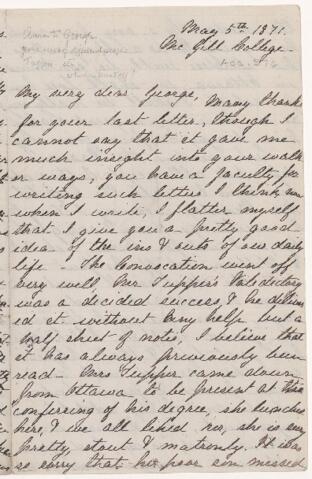 Anna to George
May 5th 1871.
McGill College
My very dear George, Many thanks
for your last letter, though I
cannot say that it gave me
much insight into your walk
or ways, you have a faculty for
writing such letters I think, now
when I write, I flatter myself
that I give you a pretty good
idea of the ins & outs of our daily
life - The Convocation went off
very well, Mr Tupper's Valedictory
was a decided success, & he deliver
ed it without any help but a
half sheet of notes, I believe that
it has always previously been
read - Mrs Tupper came down
from Ottawa to be present at the
conferring of his degree, she lunched
here & we all liked her, she is very
pretty, stout & matronly. It was
so sorry that her poor son missed